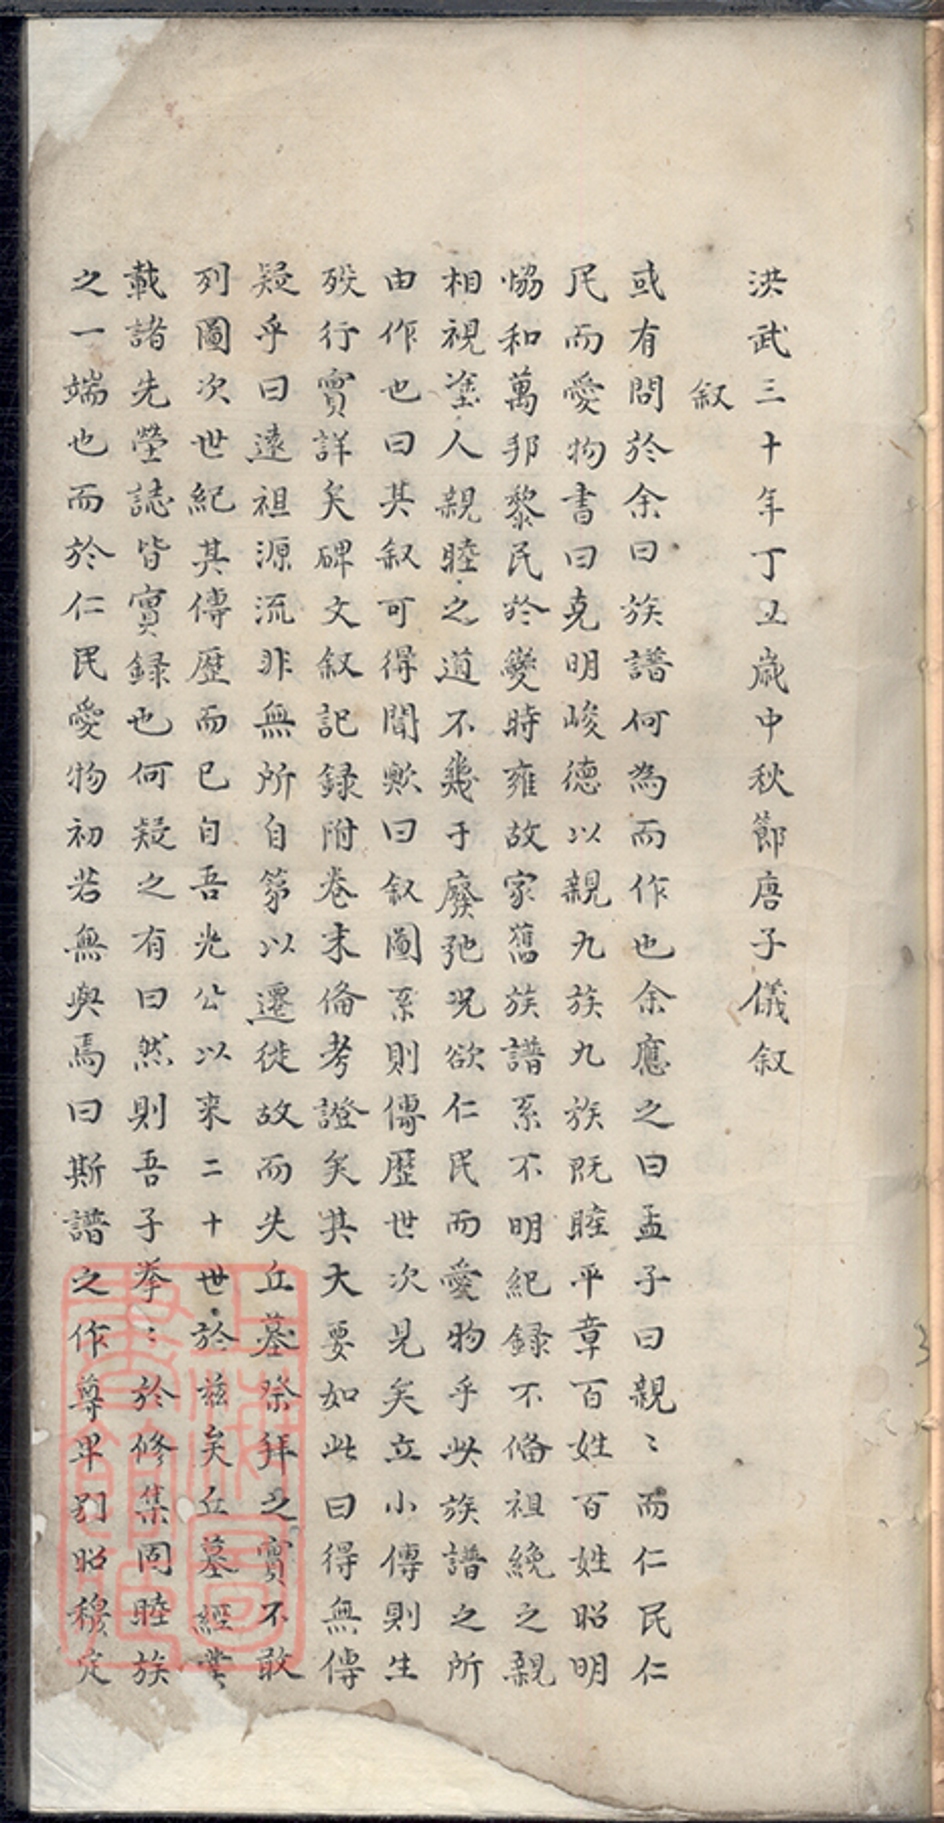 洪武三十年丁丑歲中秋節唐子儀叙
叙
或有問於余曰族譜何為而作也余應之曰孟子曰親〻而仁民仁
民而愛物書曰克明峻德以親九族九族既睦平章百姓百姓昭明
恊和萬邦黎民於變時雍故家舊族譜系不明紀錄不俻祖絻之親
相視塗人親睦之道不幾于廢弛况欲仁民而愛物乎此族譜之所
由作也曰其叙可得聞歟曰叙圖系則傳歷世次見矣立小傳則生
殁行實詳矣碑文叙記録附卷末俻考證矣其大要如此曰得無傳
疑乎曰遠祖源流非無所自第以遷徙故而失丘墓祭拜之實不敢
列圖次世紀其傳歷而已自吾光公以来二十世於兹矣丘墓經業
載諸先塋誌皆實録也何疑之有曰然則吾子拳〻於修集固睦族
之一端也而於仁民愛物初若無與焉曰斯譜之作尊卑别昭穆定